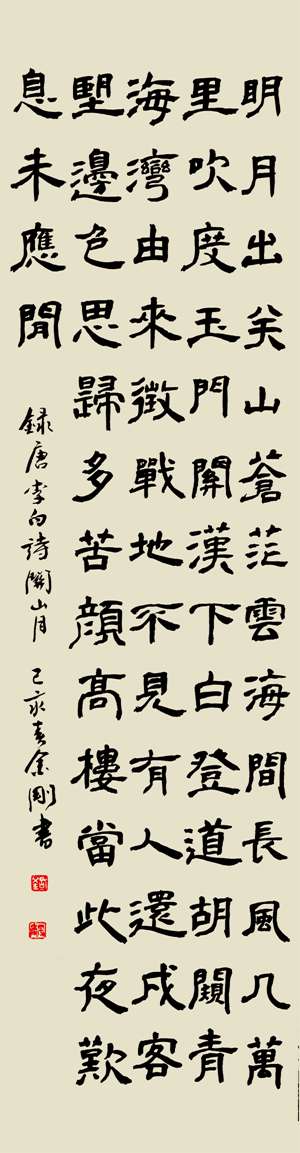 明月出关山蒼茫雲海間長風几萬
里吹度玉門關漢下白登道胡闚青
海灣由來徵戰地不見有人還戍客
朢邊色思歸多苦顏高樓當此夜歎
息未應閒
録唐李白詩關山月 己亥春余剛書